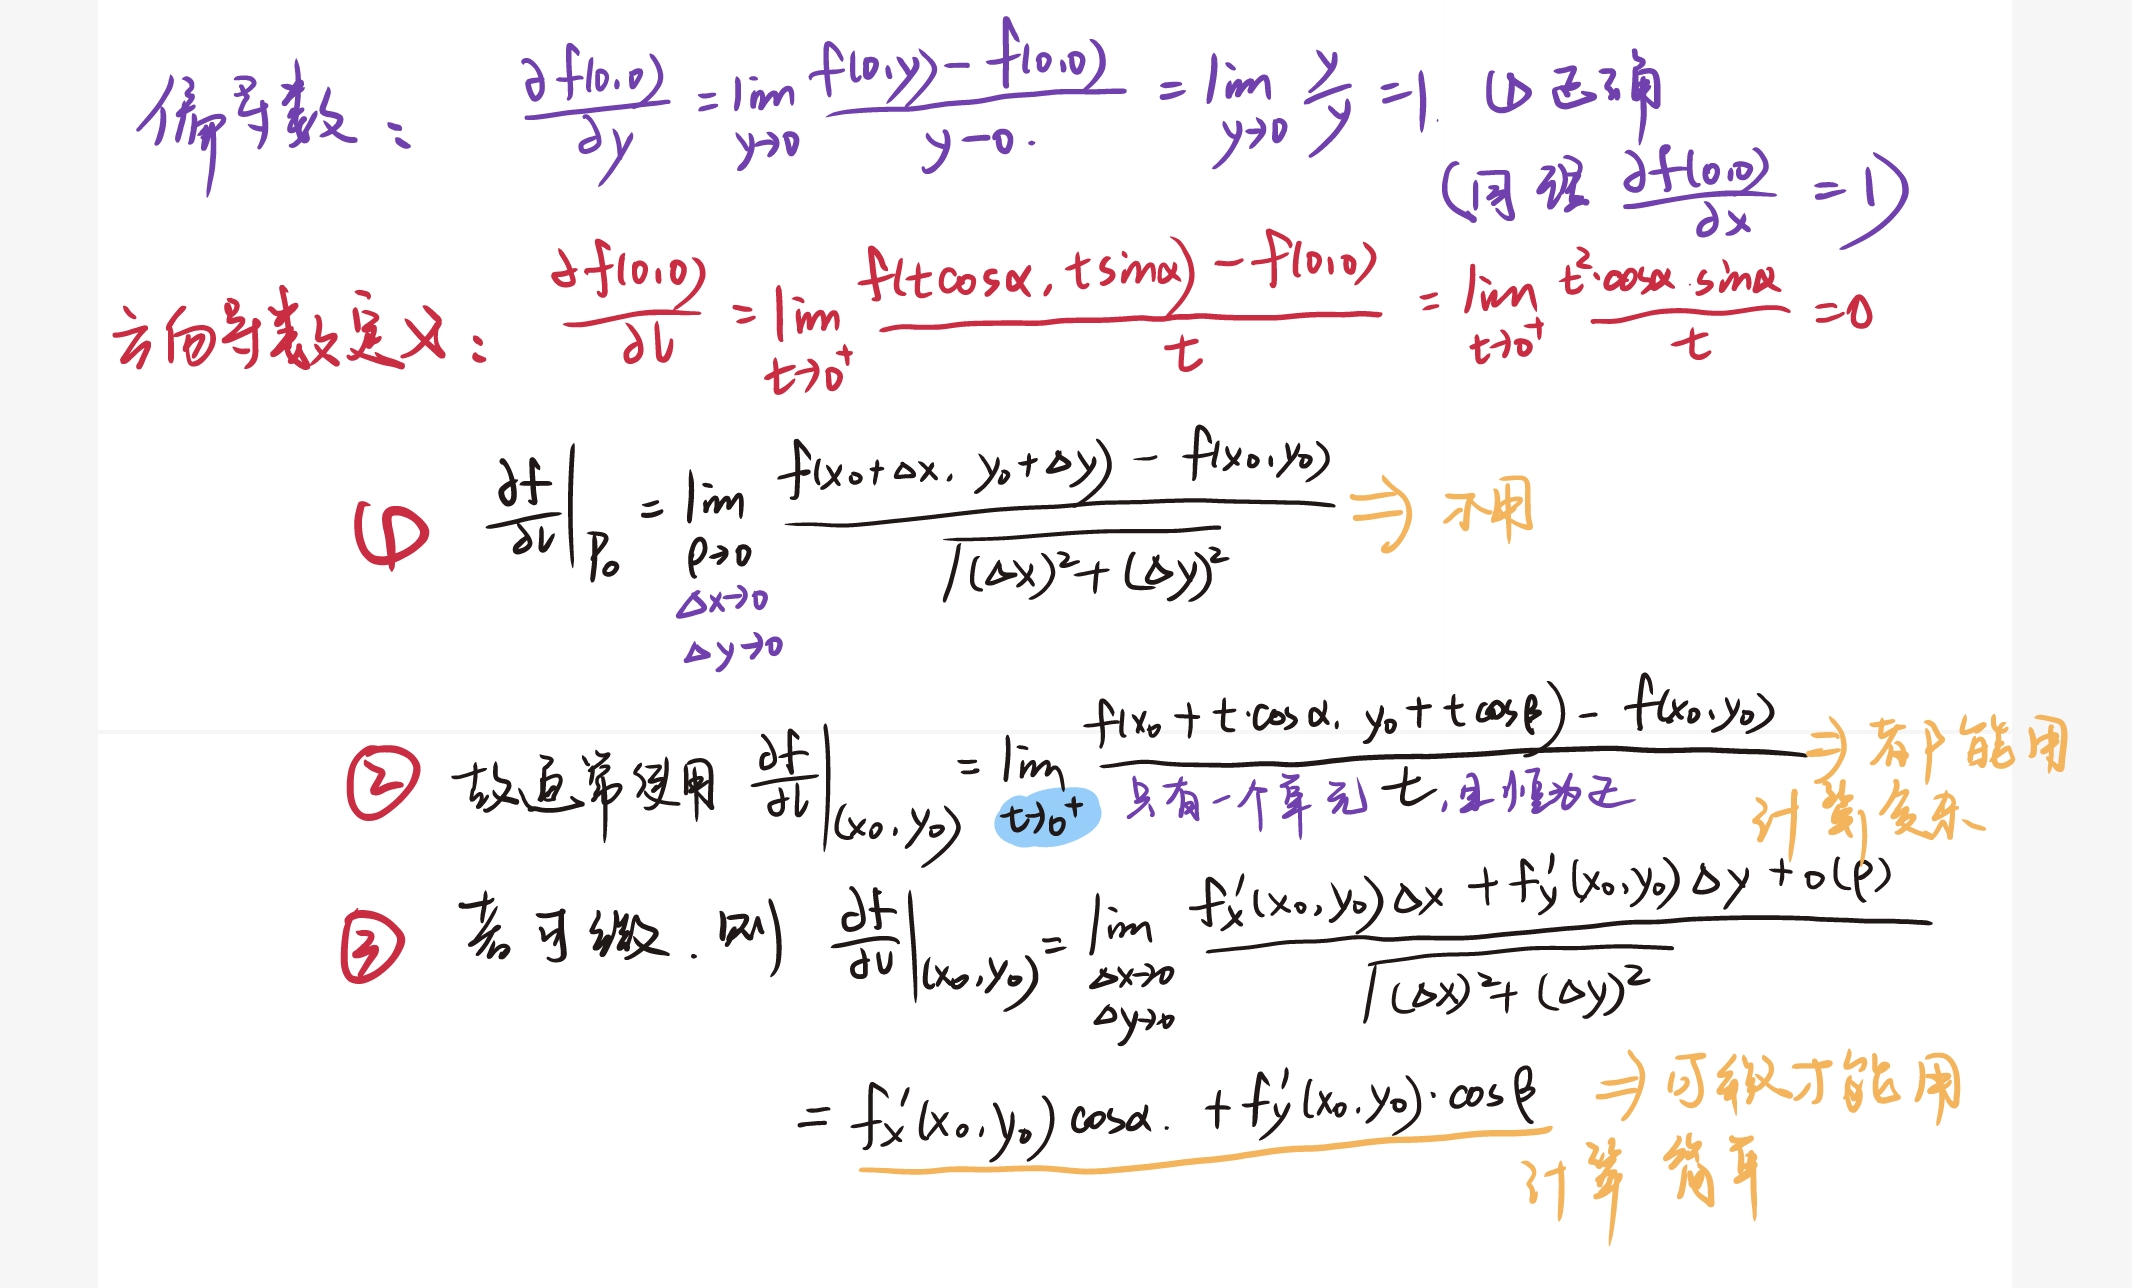 偏导数： ∂f(0,0)/∂y = lim y→0 (f(0,y) - f(0,0))/(y-0) = lim y→0 y/y = 1. ① 正确
(同理 ∂f(0,0)/∂x = 1)
方向导数定义： ∂f(0,0)/∂l = lim t→0⁺ (f(tcosα, tsinα) - f(0,0))/t = lim t→0⁺ (t²·cosα·sinα)/t = 0
① ∂f/∂l|P₀ = lim ρ→0 Δx→0 Δy→0 (f(x₀+Δx, y₀+Δy) - f(x₀,y₀))/√((Δx)²+(Δy)²) ⇒ 不用
② 故通常使用 ∂f/∂l|(x₀,y₀) = lim t→0⁺ (f(x₀+t·cosα, y₀+tcosβ) - f(x₀,y₀))/t ⇒ 都能用
只有一个单元t，且恒为正
计算复杂
③ 若可微，则 ∂f/∂l|(x₀,y₀) = lim Δx→0 Δy→0 (fx'(x₀,y₀)Δx + fy'(x₀,y₀)Δy + o(ρ))/√((Δx)²+(Δy)²)
= fx'(x₀,y₀)cosα. + fy'(x₀,y₀)·cosβ ⇒ 可微才能用
计算简单